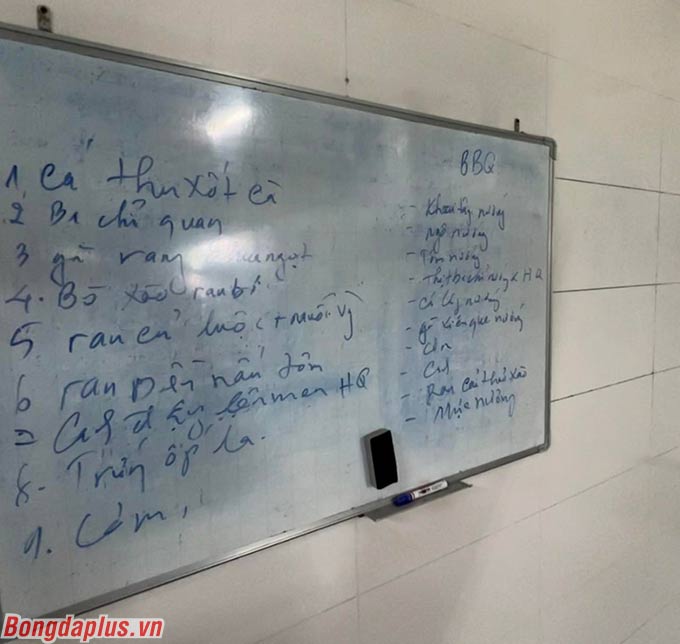 1, cá thu xốt cà
2 Ba chỉ quay
3 gà rang ngọt
4. Bò xào rau bí
5 rau củ luộc (+ muối vừng)
6 rau Dền nấu tôm
7 HQ
8. Trứng ốp la.
9. Cơm,
BBQ
- Khoai tây nướng
- ngô nướng
- Tôm nướng
- Thịt ba chỉ nướng HQ
- nướng
- gà xiên que nướng
- Cơm
- Rau cải thảo xào
- Mực nướng
Bongdaplus.vn